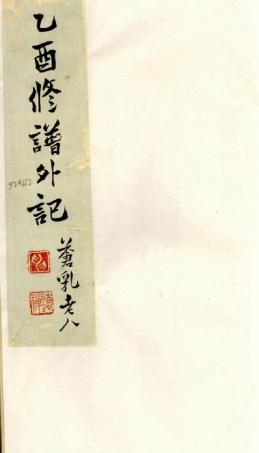 乙酉修譜外記
蒼乳老人